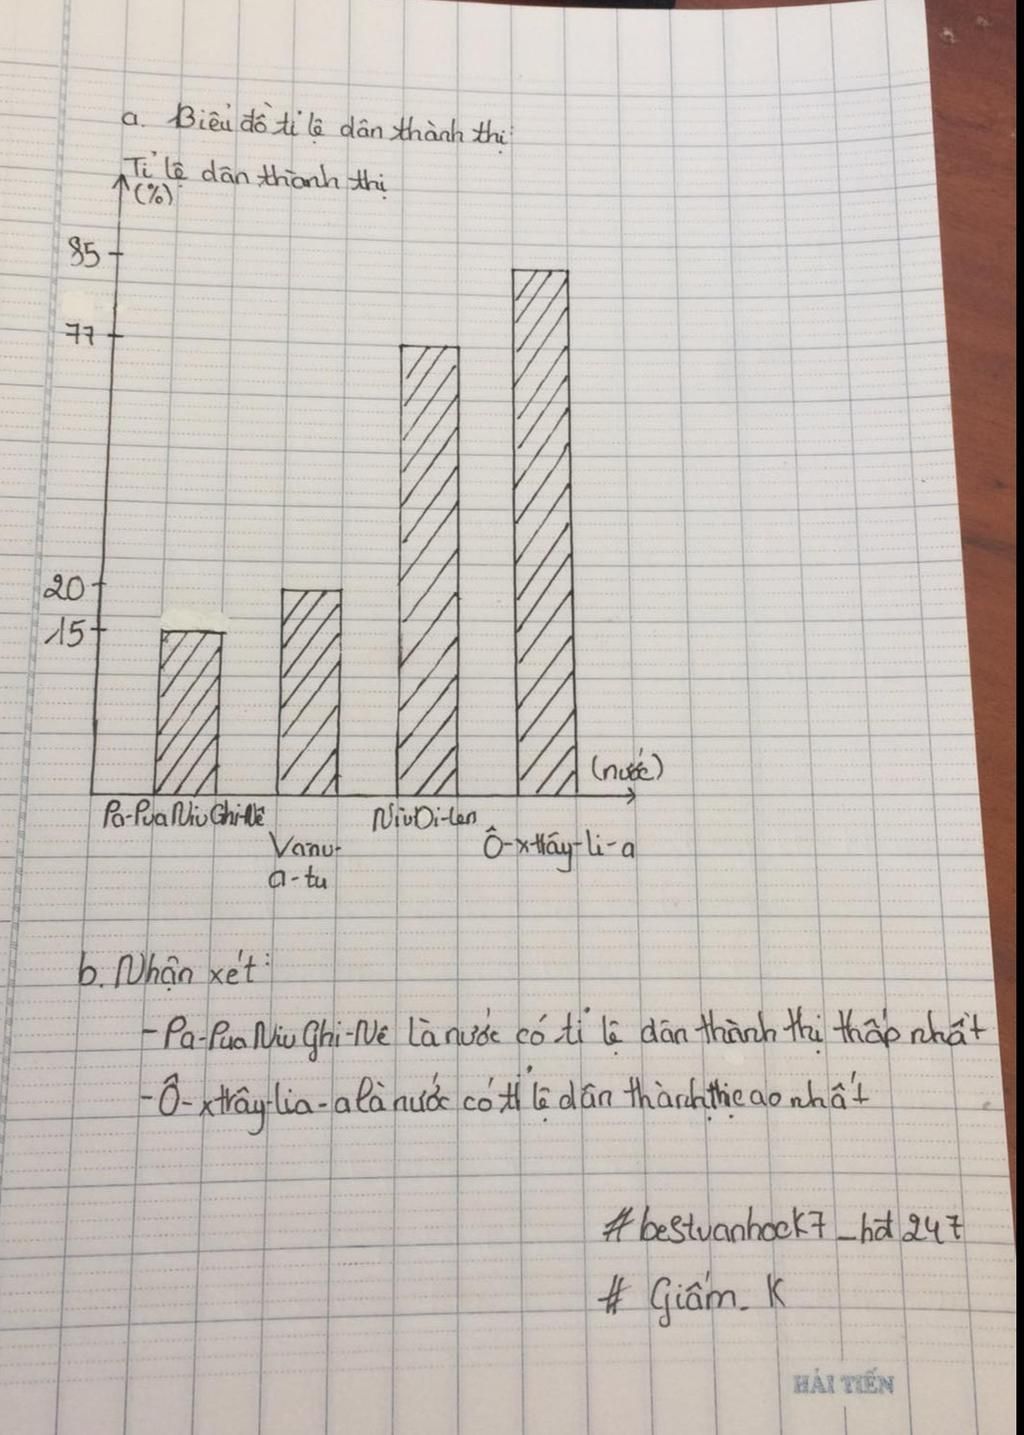 a. Biểu đồ tỉ lệ dân thành thị:
Tỉ lệ dân thành thị
(%)
85
77
20
15
(nước)
Pa-Pua Niu Ghi-Nê
Vanu-
a-tu
Niu Di-len
Ô-x-trây-li-a
b. Nhận xét:
- Pa-Pua Niu Ghi-Nê là nước có tỉ lệ dân thành thị thấp nhất
- Ô-xtrây-lia-a là nước có tỉ lệ dân thành thị cao nhất
#bestvanhock7_hd247
# Giấm_K
HẢI TIẾN